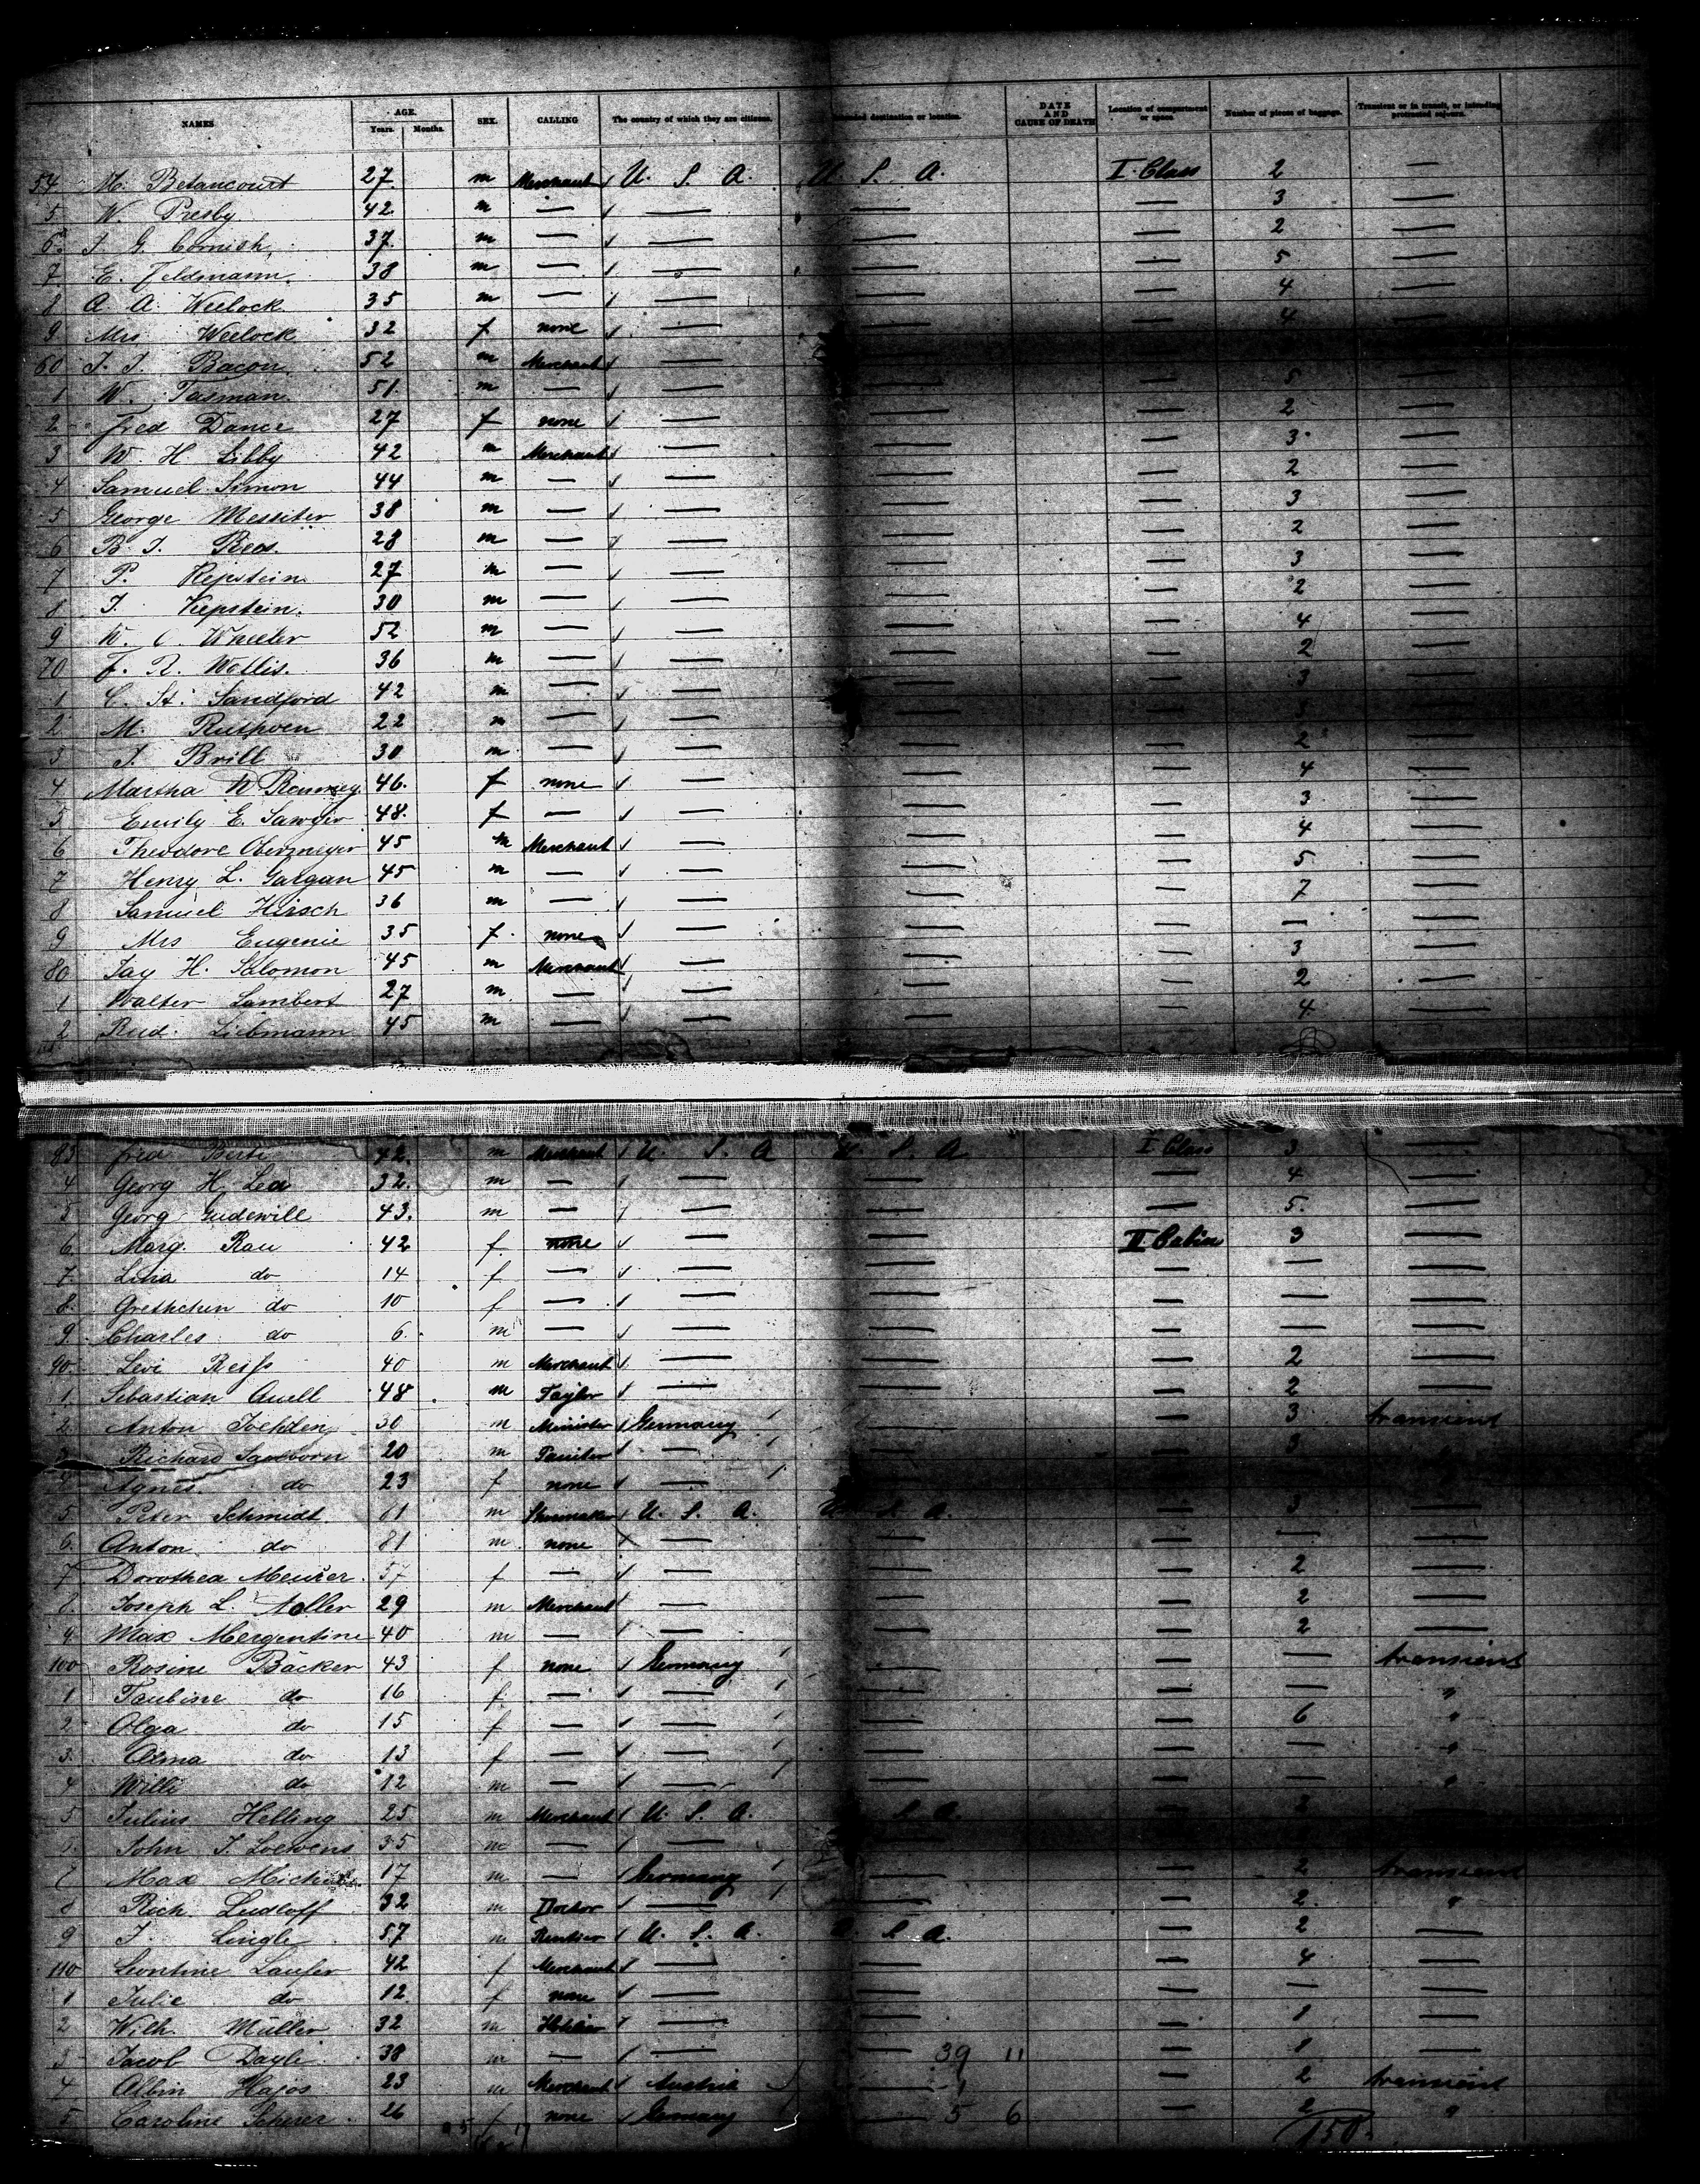 NAMES AGE. Years. Months. SEX. CALLING The country of which they are citizens. Intended destination or location. DATE AND CAUSE OF DEATH Location of compartment or space Number of pieces of baggage. Transient or in transit, or intending protracted sojourn.
54 M. Betancourt 27 m Merchant U. S. A. U. S. A. I. Class 2 —
5 W. Presby 42 m — — — — 3 —
6 J. G. Cornish 37 m — — — — 2 —
7 E. Feldmann 38 m — — — — 5 —
8 A. A. Weelock 35 m — — — — 4 —
9 Mrs Weelock 32 f none — — — 4
60 J. J. Bacon 52 m Merchant —
1 W. Tasman 51 m — — — — 5 —
2 Fred Dance 27 f none — — — 2 —
3 W. H. Libby 42 m Merchant — — — 3 —
4 Samuel Simon 44 m — — — — 2 —
5 George Messiter 38 m — — — — 3 —
6 B. J. 28 m — — — — 2 —
7 P. 27 m — — — — 3 —
8 J. 30 m — — — — 2 —
9 W. C. Wheeler 52 m — — — — 4 —
70 F. R. Wallis 36 m — — — — 2 —
1 C. St. Sandford 42 m — — — — 3 —
2 M. Ruthven 22 m — — — — 3 —
3 J. Brill 30 m — — — — 2 —
4 Martha W 46 f none — — — 4 —
5 Emily E. Sawyer 48 f — — — — 3 —
6 Theodore Obermeyer 45 m Merchant — — — 4 —
7 Henry L. Galgan 45 m — — — — 5 —
8 Samuel Hirsch 36 m — — — — 7 —
9 Mrs Eugenie 35 f none — — — — —
80 Jay H. Salomon 45 m Merchant — — — 3 —
1 Walter Lambert 27 m — — — — 2 —
2 Rud. Liebmann 45 m — — — — 4 —
83 Fred 42 m Merchant U. S. A U. S. A I Class 3 —
4 Georg H. Lea 32 m — — — — 4 —
5 Georg Gudewill 43 m — — — — 5 —
6 Marg. Rau 42 f none — — II Cabin 3 —
7 Lina do 14 f — — — — — —
8 Grethchen do 10 f — — — — — —
9 Charles do 6 m — — — — — —
90 Levi Reiss 40 m Merchant — — — 2 —
1 Sebastian Quell 48 m Taylor — — — 2 —
2 Anton 30 m Minister Germany — — 3 transient
3 Richard Sanborn 20 m — — — 3
4 Agnes do 23 f none —
5 Peter Schmidt 61 m Shoemaker U. S. A. U. S. A. — 3 —
6 Anton do 81 m none — — — — —
7 Dorothea Meurer 57 f — — — — 2 —
8 Joseph L. Adler 29 m Merchant — — — 2 —
9 Max Mergentine 40 m — — — — 2 —
100 Rosine Bäcker 43 f none Germany — — — transient
1 Paubine do 16 f — — — — — "
2 Olga do 15 f — — — — 6 "
3 Alma do 13 f — — — — — "
4 Willi do 12 m — — — — — "
5 Julius Helling 25 m Merchant U. S. A. S. A. — 2 —
6 John J. Loewens 35 m — — —
7 Max 17 m — Germany — — 2 transient
8 Rich. Ludloff 32 m Doctor — — — 2 "
9 J. Lingle 57 m Rentier U. S. A. U. S. A. — 2 —
110 Leontine Laufer 42 f Merchant — — — 4 —
1 Julie do 12 f none — — — — —
2 Wilh. Müller 32 m Hotelier — — — 1 —
3 Jacob Dayle 38 m — — — 39 11 — 1 —
4 Albin Hajos 23 m Merchant Austria — 1 — 2 transient
5 Caroline Scherer 26 f none Germany — 5 6 — 2 "
150